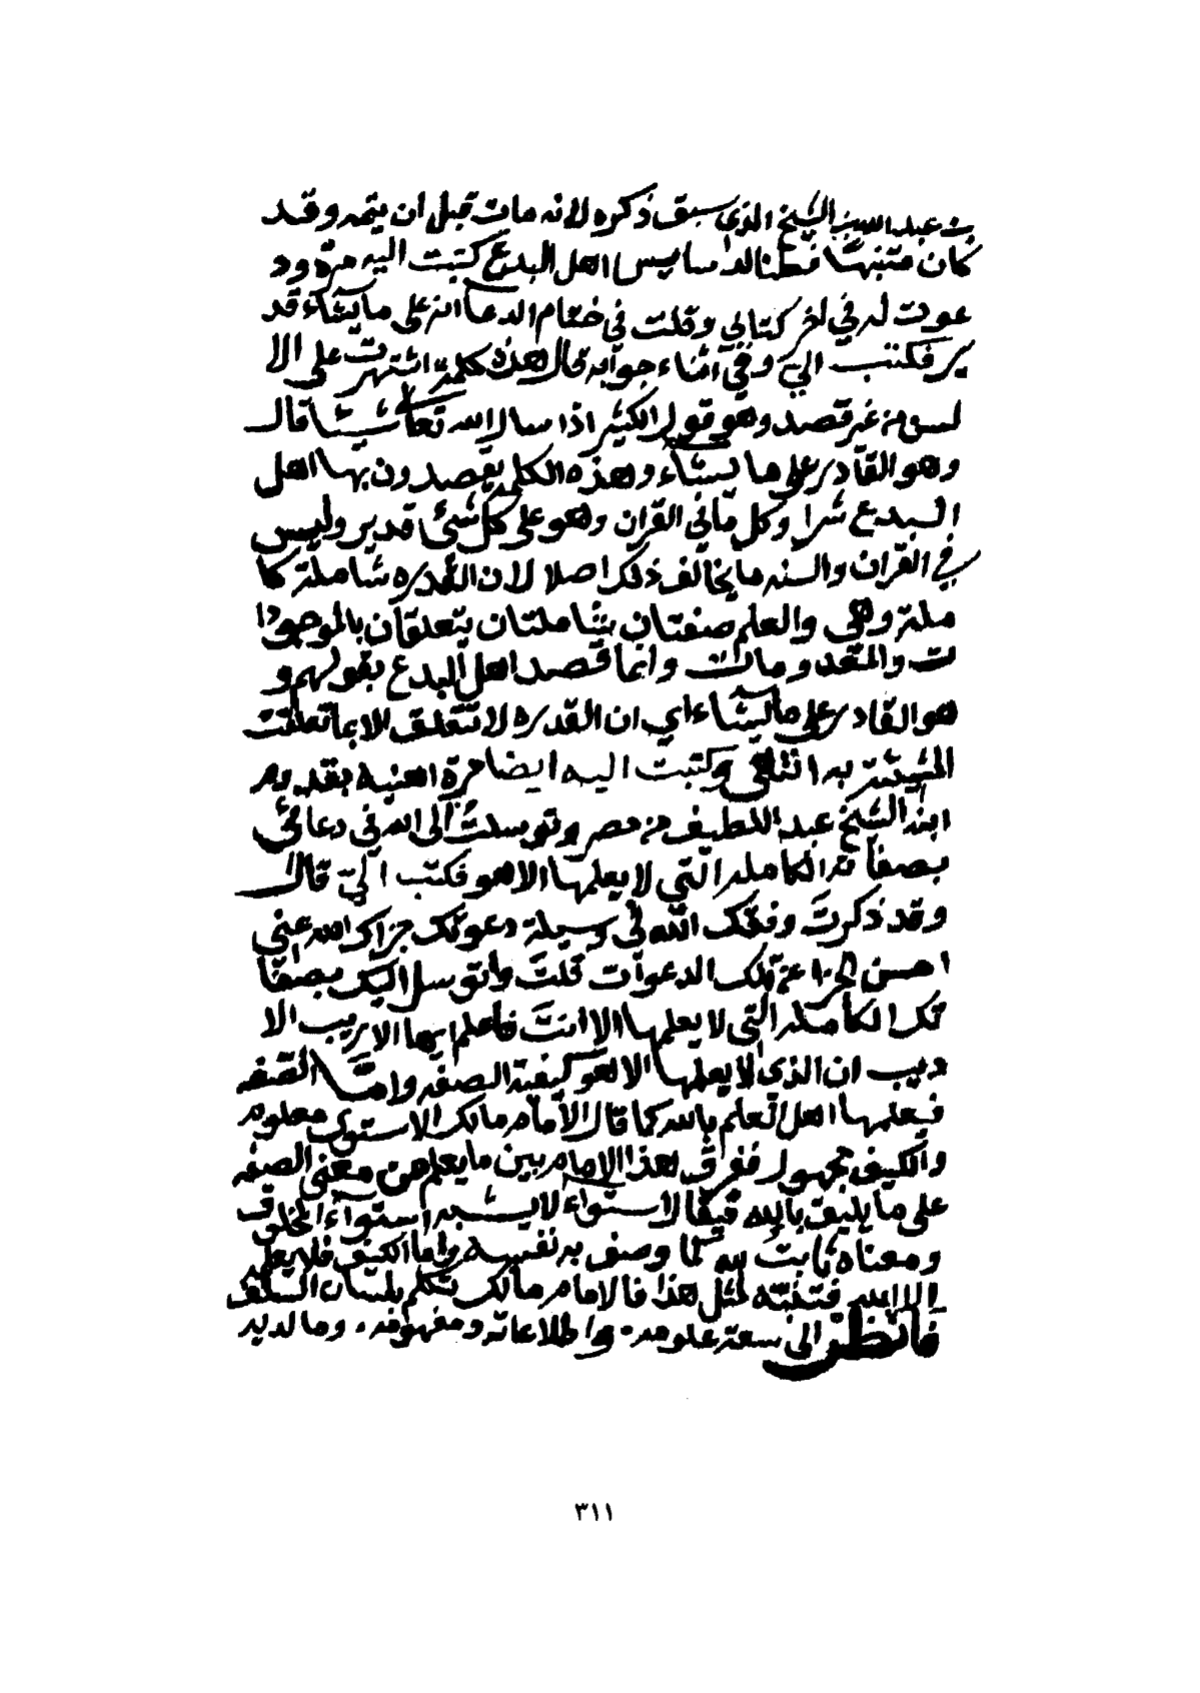 بن عبد الله بن الشيخ الذي سبق ذكره لانه مات قبل ان يتمه وقد
كان متنبها فطنا لدسايس اهل البدع كتبت اليه مرة ود
عوت له في اخر كتابي وقلت في ختام الدعا انه على ما يشآء قد
ير فكتب اليّ وفي اثناء جوابه قال هذه كلمة اشتهرت على الا
لسن من غير قصد وهو قول الكثير اذا سال الله تعالى شيئا قال
وهو القادر على ما يشآء وهذه الكلمه يقصدون بها اهل
البدع شرا وكل ما في القران وهو على كل شئ قدير وليس
في القران والسنه ما يخالف ذلك اصلا لان القدره شاملة كا
ملة وهي والعلم صفتان شاملتان يتعلقان بالموجودا
ت والمعدومات وانما قصد اهل البدع بقولهم و
هو القادر على ما يشاء اي ان القدره لا تتعلق الا بما تعلقت
المشيئة به انتهى وكتبت اليه ايضا مرة اهنيه بقدوم
ابنه الشيخ عبد اللطيف من مصر وتوسلت الى الله في دعائي
بصفاته الكامله التي لا يعلمها الا هو فكتب اليّ قال
وقد ذكرتَ وفقك الله في وسيلة دعوتك جزاك الله عني
احسن الجزا عن تلك الدعوات قلتَ واتوسل اليك بصفا
تك الكامله التي لا يعلمها الا انتَ فاعلم ايها الاريب الا
ديب ان الذي لا يعلمها الا هو كيفية الصفه وامّا الصفه
فيعلمها اهل العلم بالله كما قال الامام مالك الاستوى معلوم
والكيف مجهول ففرق هذا الامام بين ما يعلم من معنى الصفه
على ما يليق بالله فيقال استواء لا يشبه استوآء المخلوق
ومعناه ثابت لله كما وصف به نفسه واما الكيف فلا يعلمه
الا الله فتنبه لمثل هذا فالامام مالك تكلم بلسان السلف
فانظر الى سعة علومه واطلاعاته ومفهومه، وما لديه
٣١١